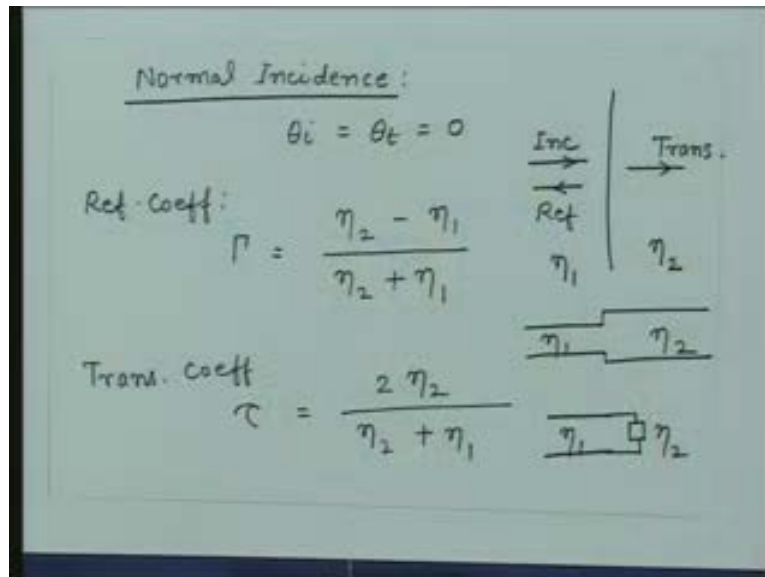 Normal Incidence:
θi = θt = 0
Ref. Coeff:
Γ = (η₂ - η₁) / (η₂ + η₁)
Trans. Coeff
τ = 2 η₂ / (η₂ + η₁)
Inc
Trans.
Ref
η₁ η₂
η₁ η₂
η₁ η₂